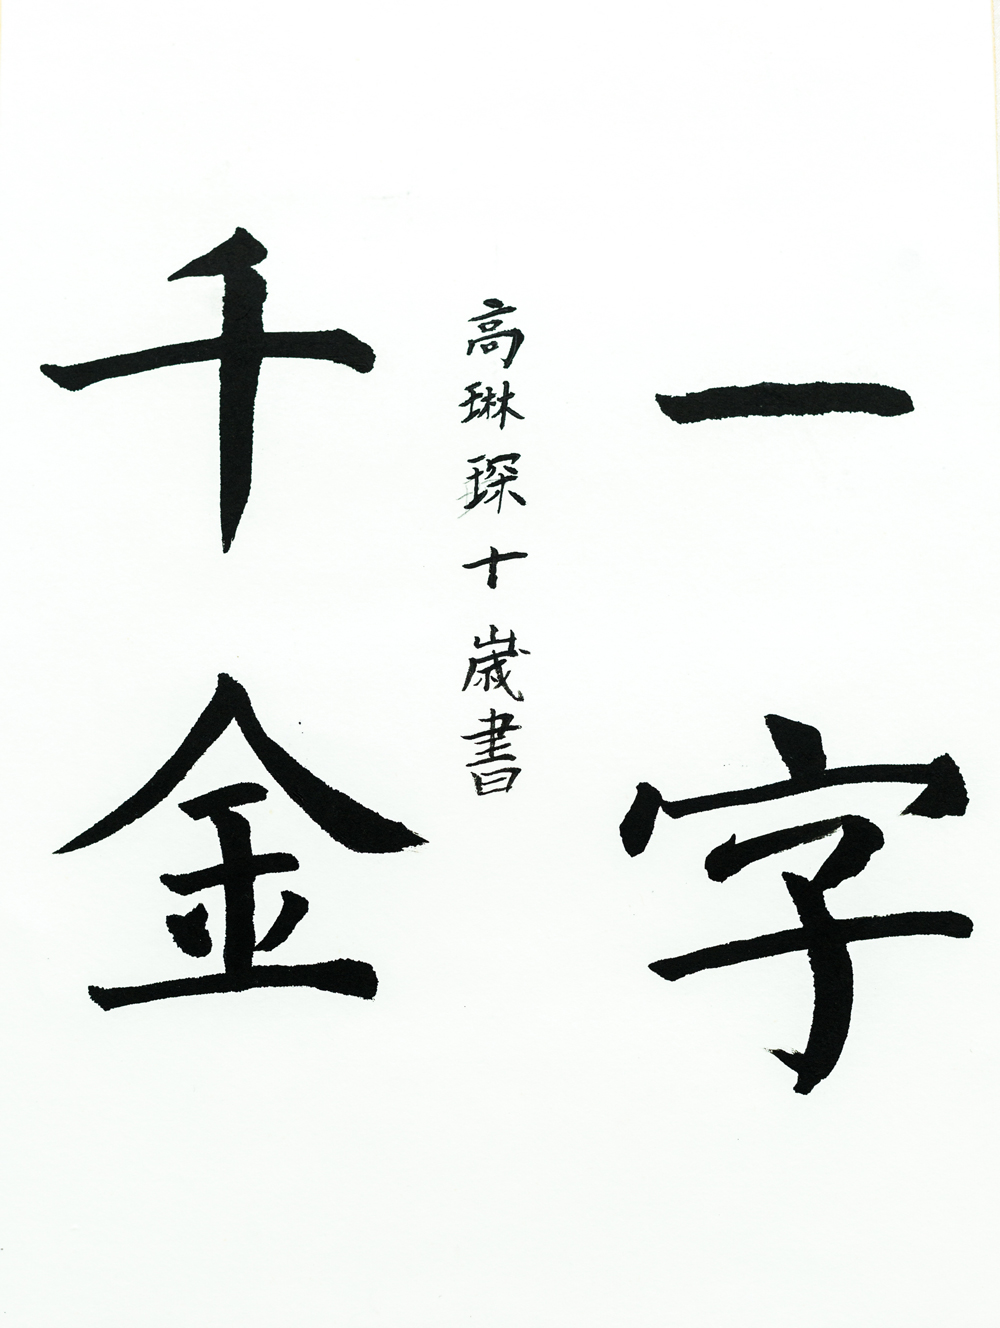 一字
高琳琛十歲書
千金